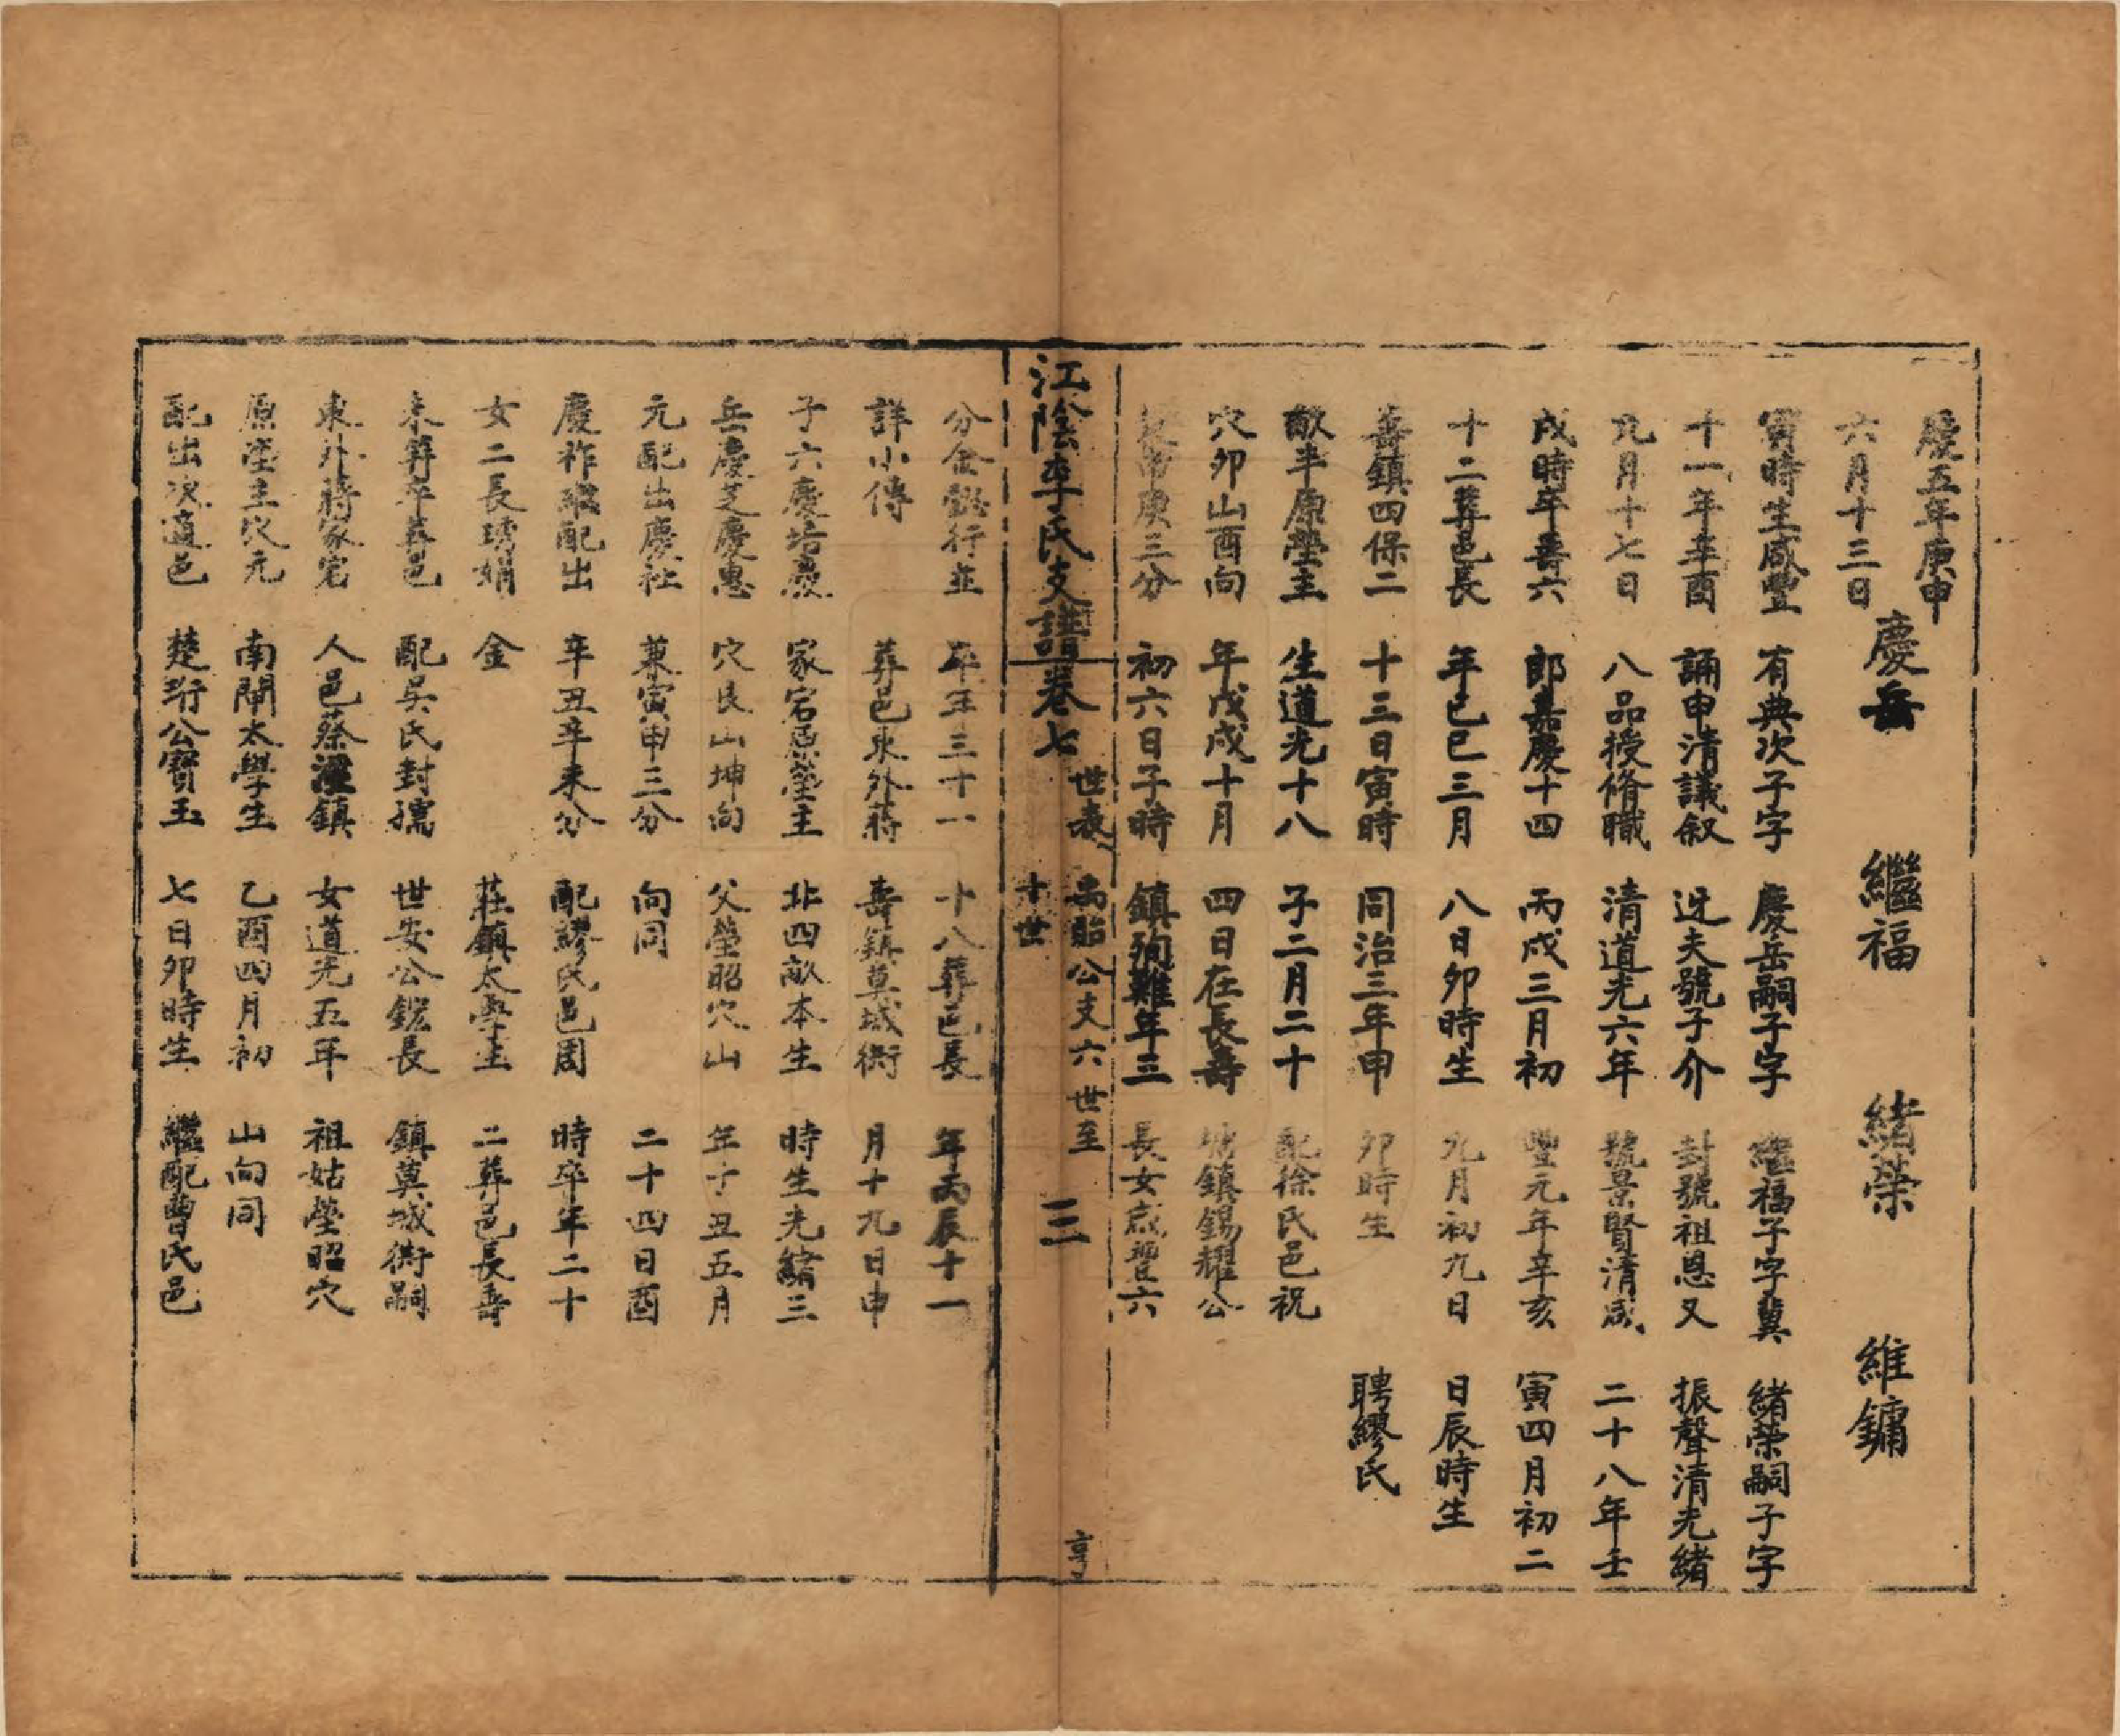 慶五年庚申
六月十三日 慶岳 繼福 緒榮 維鏞
寅時生咸豐 有典次子字 慶岳嗣子字 繼福子字冀 緒榮嗣子字
十一年辛酉 誦申清議叙 迓夫號子介 封號祖恩又 振聲清光緒
九月十七日 八品授脩職 清道光六年 號景賢清咸 二十八年壬
戌時卒壽六 郎嘉慶十四 丙戌三月初 豐元年辛亥 寅四月初二
十二葬邑長 年己巳三月 八日卯時生 九月初九日 日辰時生
壽鎮四保二 十三日寅時 同治三年甲 卯時生 聘繆氏
畝半原塋主 生道光十八 子二月二十 配徐氏邑祝
穴卯山酉向 年戊戌十月 四日在長壽 塘鎮錫耀公
兼甲庚三分 初六日子時 鎮殉難年三 長女咸豐六
江陰李氏支譜卷七 世表 禹貽公支六世至十世 三 亨
分金懿行並 卒年三十一 十八葬邑長 年丙辰十一
詳小傳 葬邑東外蔣 壽鎮草城衖 月十九日申
子六慶坊慶 家宕原塋主 北四畝本生 時生光緒三
岳慶芝慶惠 穴艮山坤向 父塋昭穴山 年丁丑五月
元配出慶社 兼寅申三分 向同 二十四日酉
慶祚繼配出 辛丑辛未分 配繆氏邑周 時卒年二十
女二長琇娟 金 莊鎮太學生 二葬邑長壽
未笄卒葬邑 配吳氏封孺 世安公鋐長 鎮莫城衖嗣
東外蔣家宕 人邑蔡涇鎮 女道光五年 祖姑塋昭穴
原塋主穴元 南閘太學生 乙酉四月初 山向同
配出次適邑 楚珩公寶玉 七日卯時生 繼配曹氏邑